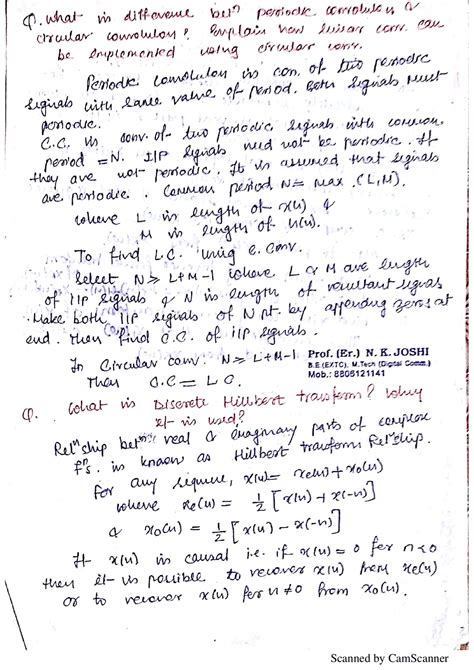 Q. What is difference betn periodic convolution &
circular convolution? Explain how linear conv. can
be implemented using circular conv.
Periodic convolution is con. of two periodic
signals with same value of period. Both signals must
periodic.
C.C. is conv. of two periodic signals with common
period = N. I/P signals need not be periodic. If
they are not periodic. It is assumed that signals
are periodic. Common period N = max (L, M).
where L is length of x(n) &
M is length of h(n).
To find L.C. using C. Conv.
Select N ≥ L+M-1 where L & M are length
of I/P signals & N is length of resultant signas
Make both I/P signals of N pt. by appending zeros at
end. Then find C.C. of I/P signals.
In Circular conv. N ≥ L+M-1
Then C.C = L C.
Prof. (Er.) N. K. JOSHI
B.E.(EXTC), M.Tech (Digital Comm.)
Mob.: 8805121141
Q. What is Discrete Hillbert transform? Why
it is used?
Reln ship betn real & imaginary parts of complex
fns. is known as Hillbert trasform Reln ship.
for any sequence, x(n) = xe(n) + xo(n)
where xe(n) = 1/2 [x(n) + x(-n)]
& xo(n) = 1/2 [x(n) - x(-n)]
If x(n) is causal i.e. if x(n) = 0 for n < 0
then it is possible to recover x(n) from xe(n)
or to recover x(n) for n ≠ 0 from xo(n).
Scanned by CamScanner